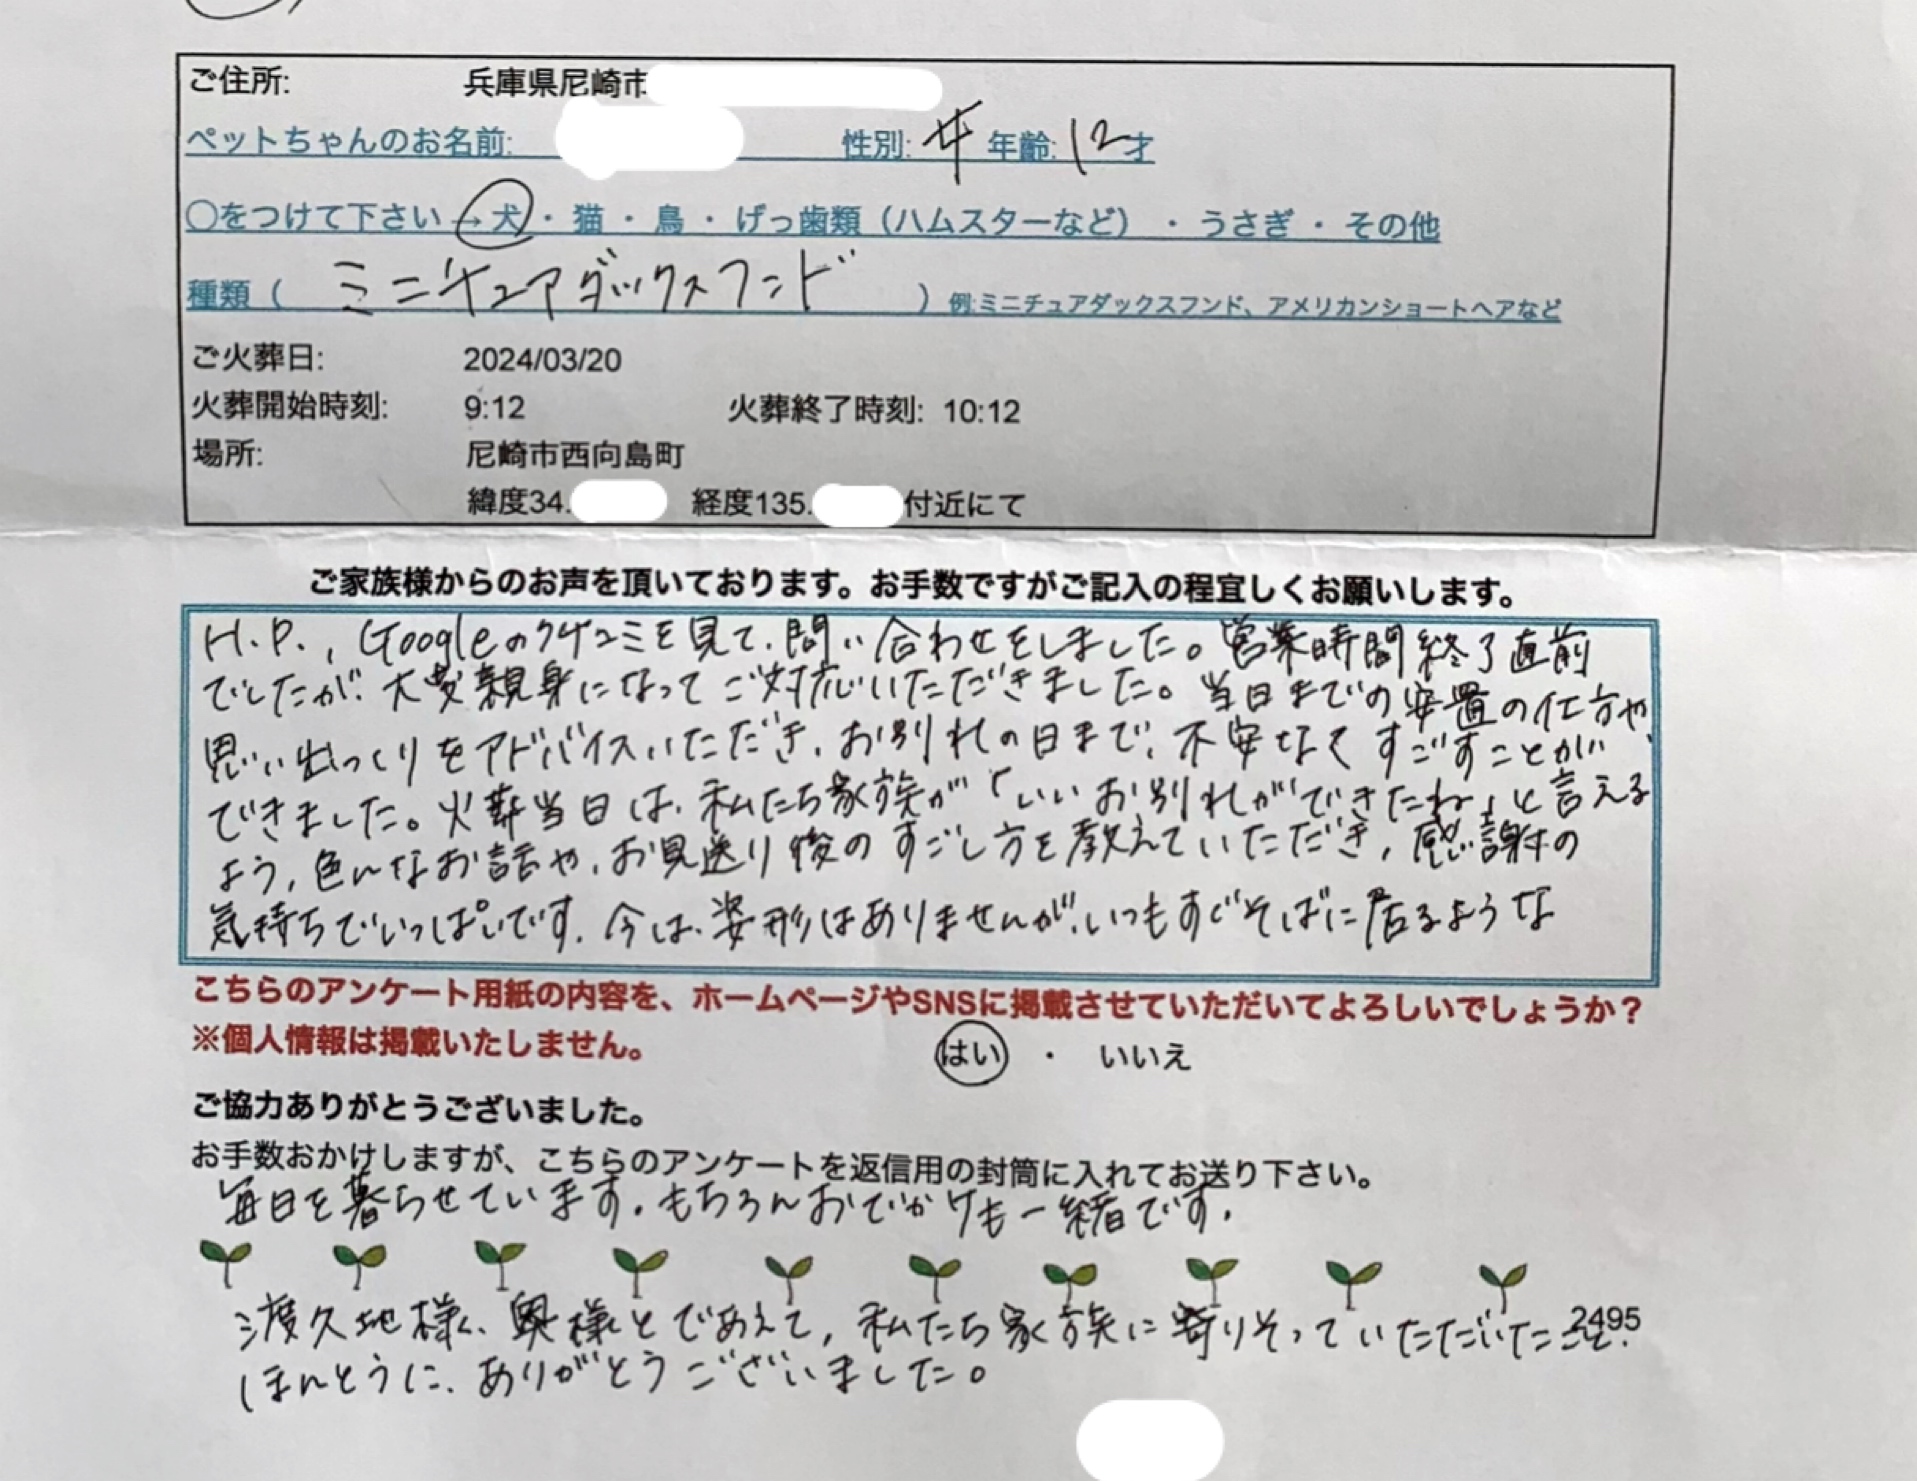 ご住所: 兵庫県尼崎市
ペットちゃんのお名前: 性別: 年齢: 12才
〇をつけて下さい→犬・猫・鳥・げっ歯類（ハムスターなど）・うさぎ・その他
種類（ ミニチュアダックスフンド ）例:ミニチュアダックスフンド、アメリカンショートヘアなど
ご火葬日: 2024/03/20
火葬開始時刻: 9:12 火葬終了時刻: 10:12
場所: 尼崎市西向島町
緯度34. 経度135. 付近にて
ご家族様からのお声を頂いております。お手数ですがご記入の程宜しくお願いします。
H.P.、Googleのクチコミを見て、問い合わせをしました。営業時間終了直前
でしたが、大変親身になってご対応いただきました。当日までの安置の仕方や、
思い出づくりをアドバイスいただき、お別れの日まで、不安なくすごすことが
できました。火葬当日は、私たち家族が「いいお別れができたね」と言える
よう、色んなお話や、お見送り後のすごし方を教えていただき、感謝の
気持ちでいっぱいです。今は、姿形はありませんが、いつもすぐそばに居るような
こちらのアンケート用紙の内容を、ホームページやSNSに掲載させていただいてよろしいでしょうか？
※個人情報は掲載いたしません。 はい ・ いいえ
ご協力ありがとうございました。
お手数おかけしますが、こちらのアンケートを返信用の封筒に入れてお送り下さい。
毎日を暮らせています。もちろんおでかけも一緒です。
2495
渡久地様、奥様とであえて、私たち家族に寄りそっていただいたこと、
ほんとうに、ありがとうございました。